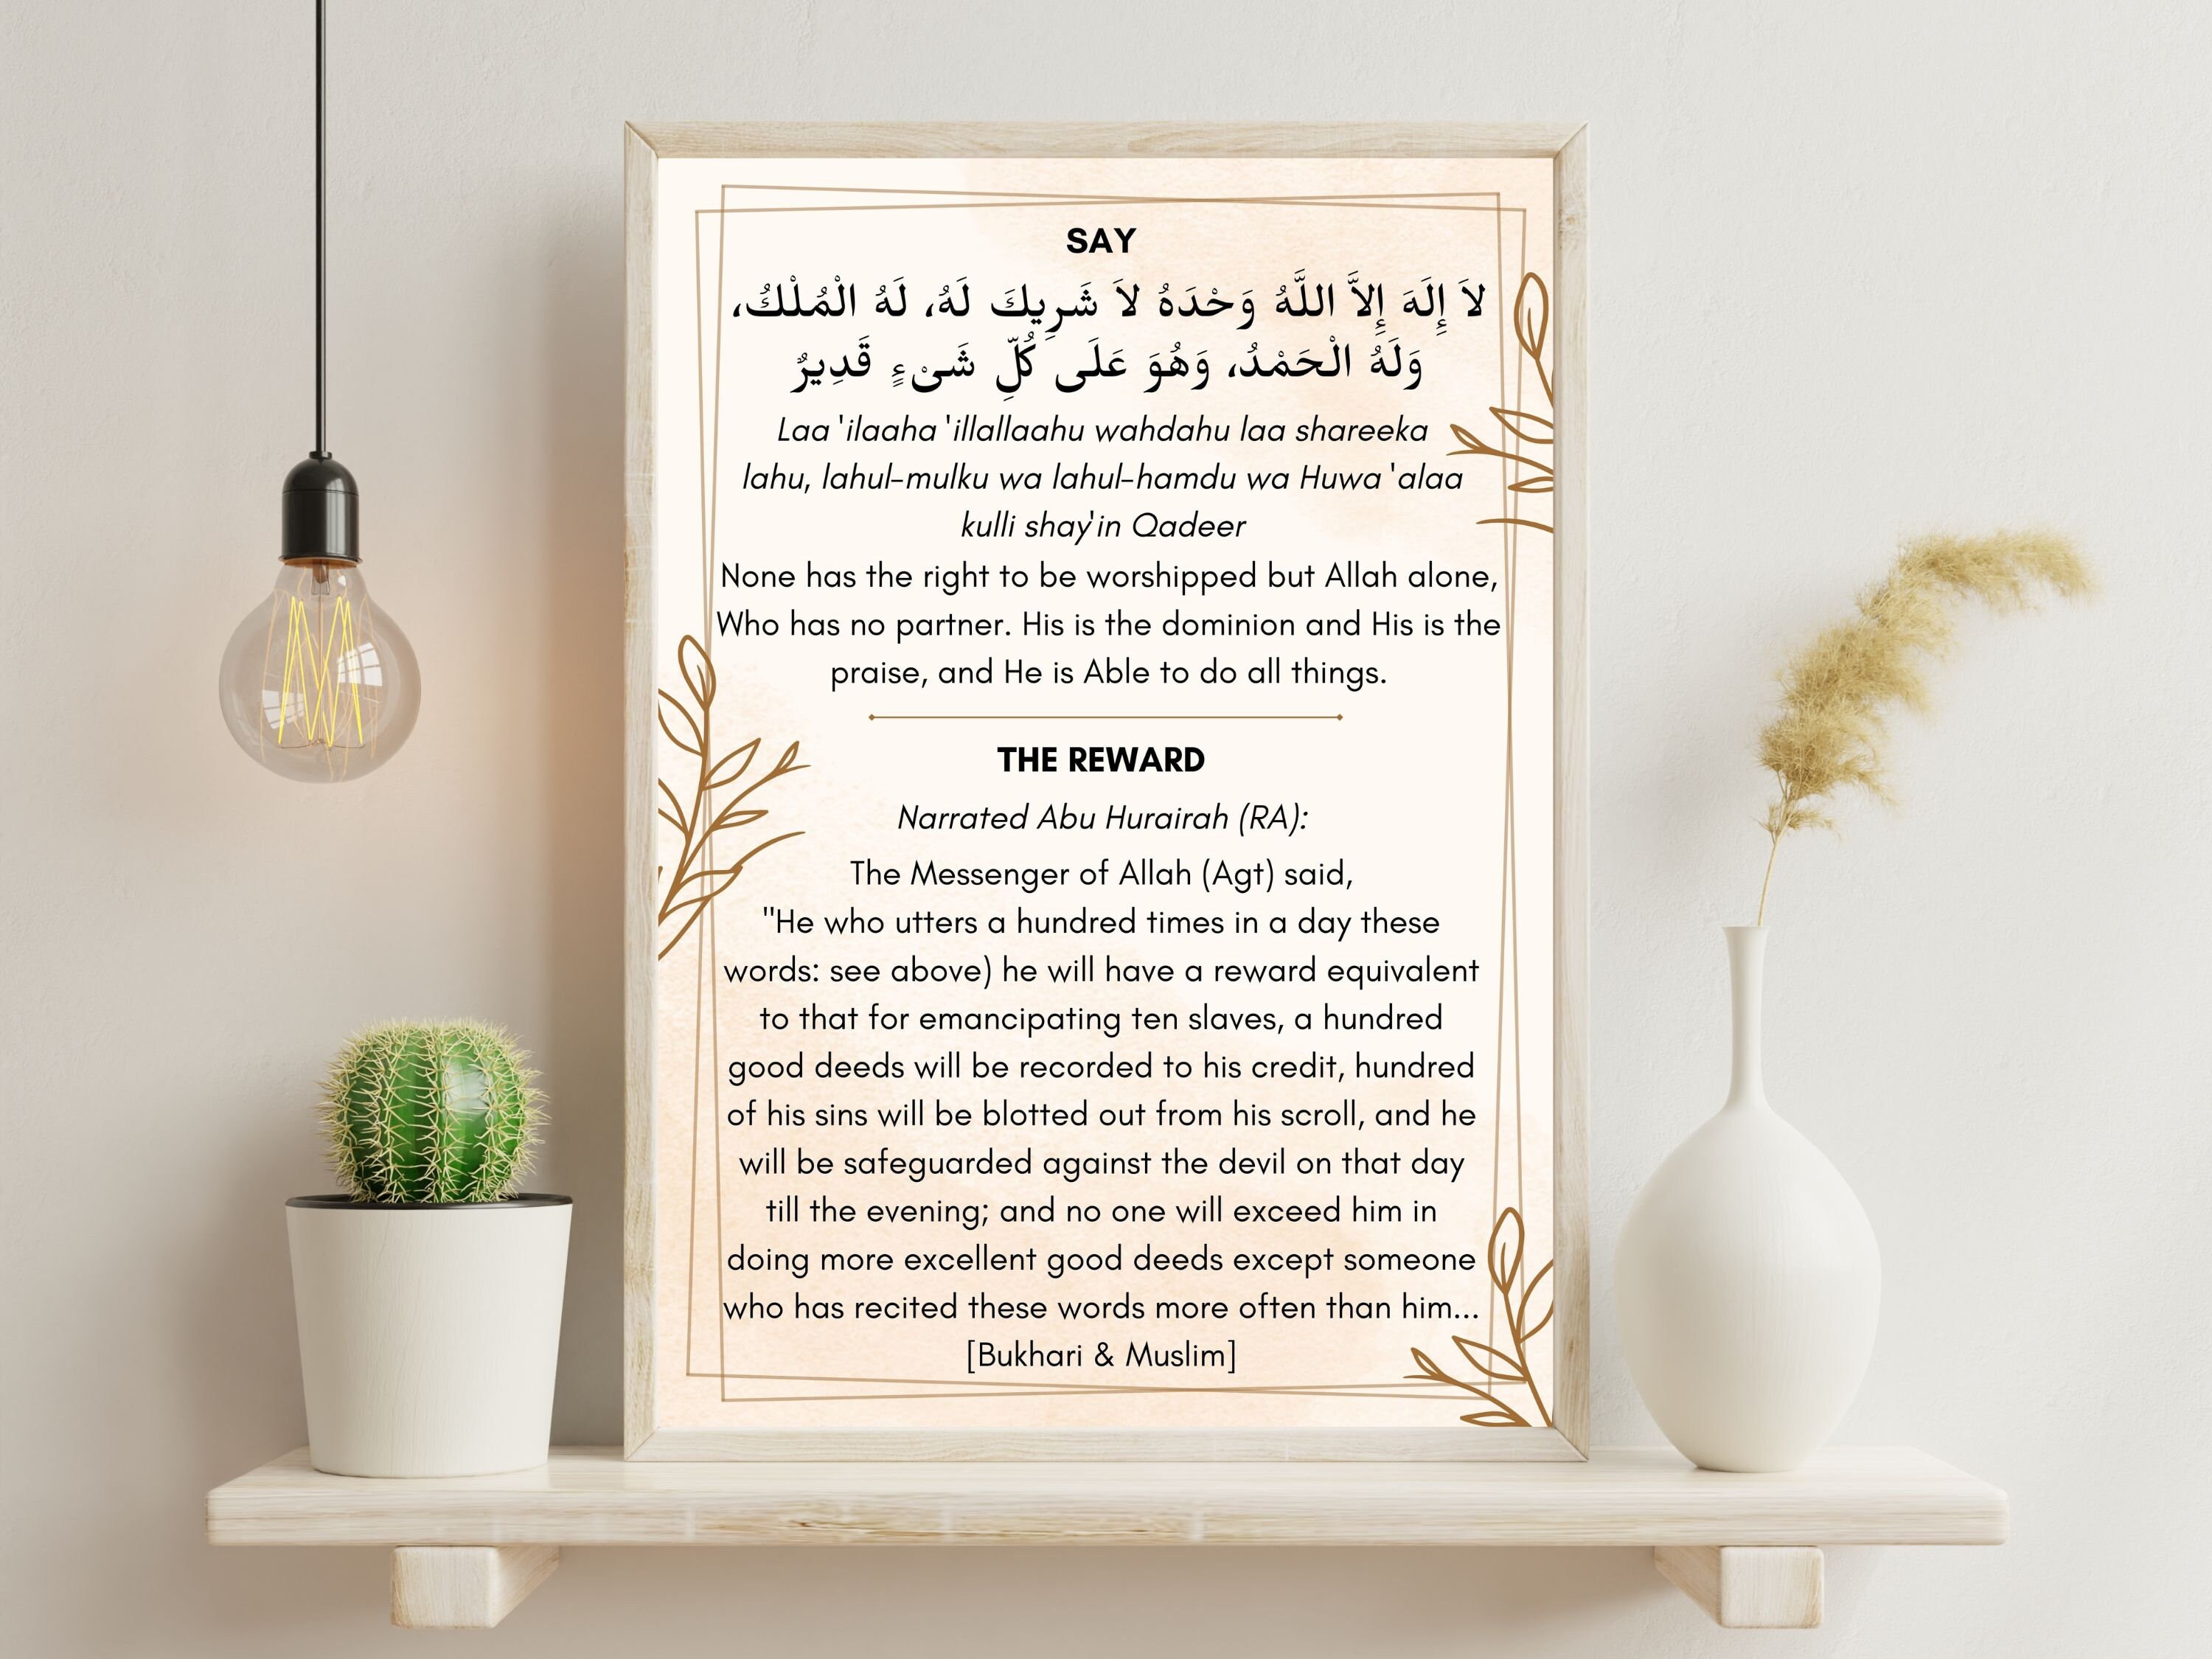 SAY
لاَ إِلَهَ إِلاَّ اللَّهُ وَحْدَهُ لاَ شَرِيكَ لَهُ، لَهُ الْمُلْكُ،
وَلَهُ الْحَمْدُ، وَهُوَ عَلَى كُلِّ شَىْءٍ قَدِيرٌ
Laa 'ilaaha 'illallaahu wahdahu laa shareeka
lahu, lahul-mulku wa lahul-hamdu wa Huwa 'alaa
kulli shay'in Qadeer
None has the right to be worshipped but Allah alone,
Who has no partner. His is the dominion and His is the
praise, and He is Able to do all things.
THE REWARD
Narrated Abu Hurairah (RA):
The Messenger of Allah (Agt) said,
"He who utters a hundred times in a day these
words: see above) he will have a reward equivalent
to that for emancipating ten slaves, a hundred
good deeds will be recorded to his credit, hundred
of his sins will be blotted out from his scroll, and he
will be safeguarded against the devil on that day
till the evening; and no one will exceed him in
doing more excellent good deeds except someone
who has recited these words more often than him...
[Bukhari & Muslim]